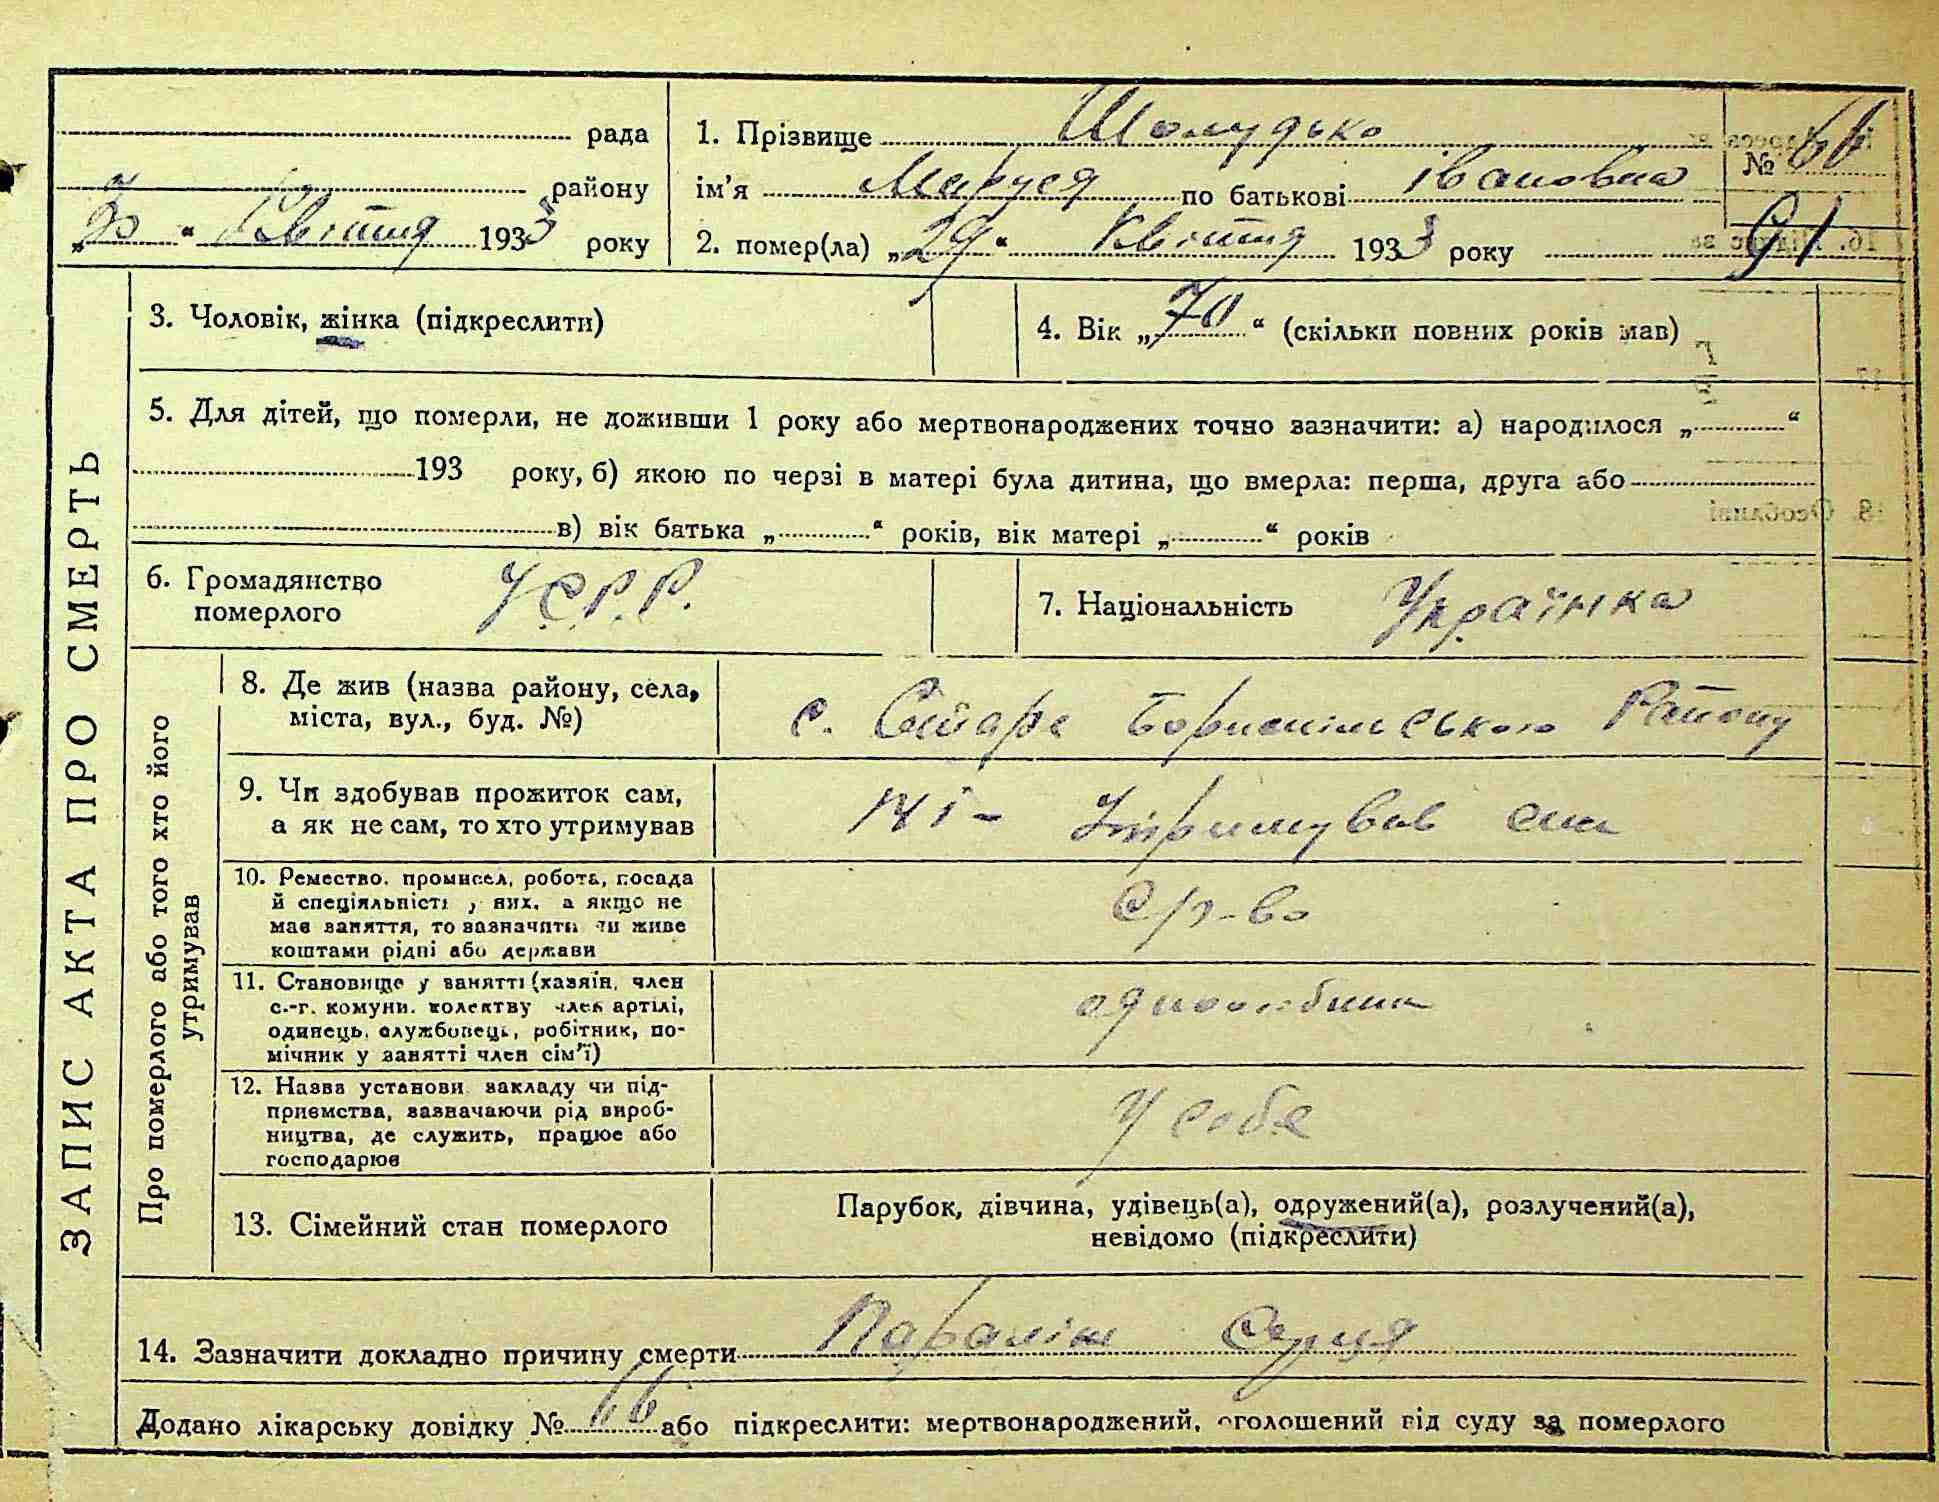 рада
району
„30“ Квітня 1933 року
1. Прізвище Шолудько
ім’я Маруся по батькові Івановна
№ 66
2. помер(ла) „29“ Квітня 1933 року
91
3. Чоловік, жінка (підкреслити)
4. Вік „70“ (скільки повних років мав)
5. Для дітей, що померли, не доживши 1 року або мертвонароджених точно зазначити: а) народилося „ “
193 року, б) якою по черзі в матері була дитина, що вмерла: перша, друга або
в) вік батька „ “ років, вік матері „ “ років
6. Громадянство
померлого
У.С.Р.Р.
7. Національність Українка
ЗАПИС АКТА ПРО СМЕРТЬ
Про померлого або того хто його
утримував
8. Де жив (назва району, села,
міста, вул., буд. №)
с. Старе Бориспільського Району
9. Чи здобував прожиток сам,
а як не сам, то хто утримував
Ні - Утримував син
10. Ремество, промисел, робота, посада
й спеціяльність у них, а якщо не
має заняття, то зазначити чи живе
коштами рідні або держави
11. Становище у занятті (хазяїн, член
с.-г. комуни, колективу член артілі,
одинець, службовець, робітник, по-
мічник у занятті член сім’ї)
12. Назва установи закладу чи під-
приємства, зазначаючи рід вироб-
ництва, де служить, працює або
господарює
У себе
13. Сімейний стан померлого
Парубок, дівчина, удівець(а), одружений(а), розлучений(а),
невідомо (підкреслити)
14. Зазначити докладно причину смерти Параліч Серця
Додано лікарську довідку № 66 або підкреслити: мертвонароджений, оголошений від суду за померлого